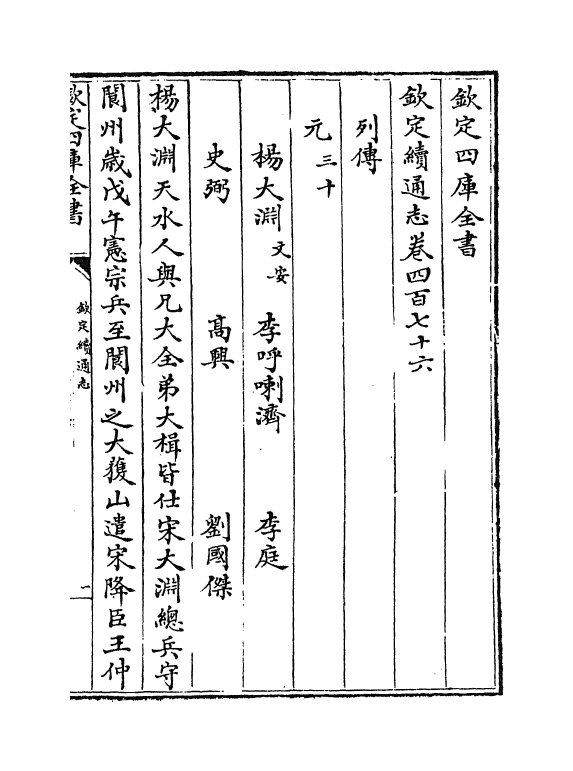 欽定四庫全書
欽定續通志卷四百七十六
列傳
元三十
楊大淵文安 李呼喇濟 李庭
史弼 高興 劉國傑
楊大淵天水人與兄大全弟大楫皆仕宋大淵總兵守
閬州歲戊午憲宗兵至閬州之大獲山遣宋降臣王仲
欽定四庫全書
欽定續通志
一